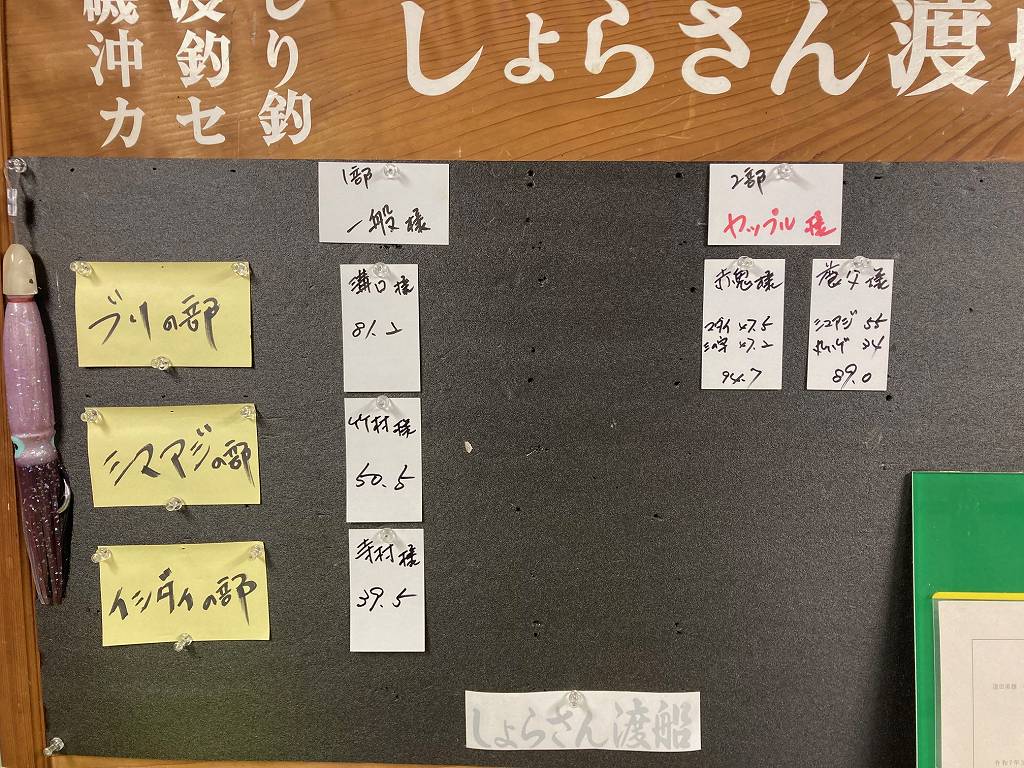 しょらさん渡船
しり釣
渡釣セ
磯沖カ
1部
一般様
2部
カップル様
ブリの部
溝口様
81.2
赤鬼様
マダイ 47.5
94.7
養父様
シマアジ 55
34
89.0
シマアジの部
竹村様
50.5
イシダイの部
寺村様
39.5
しょらさん渡船